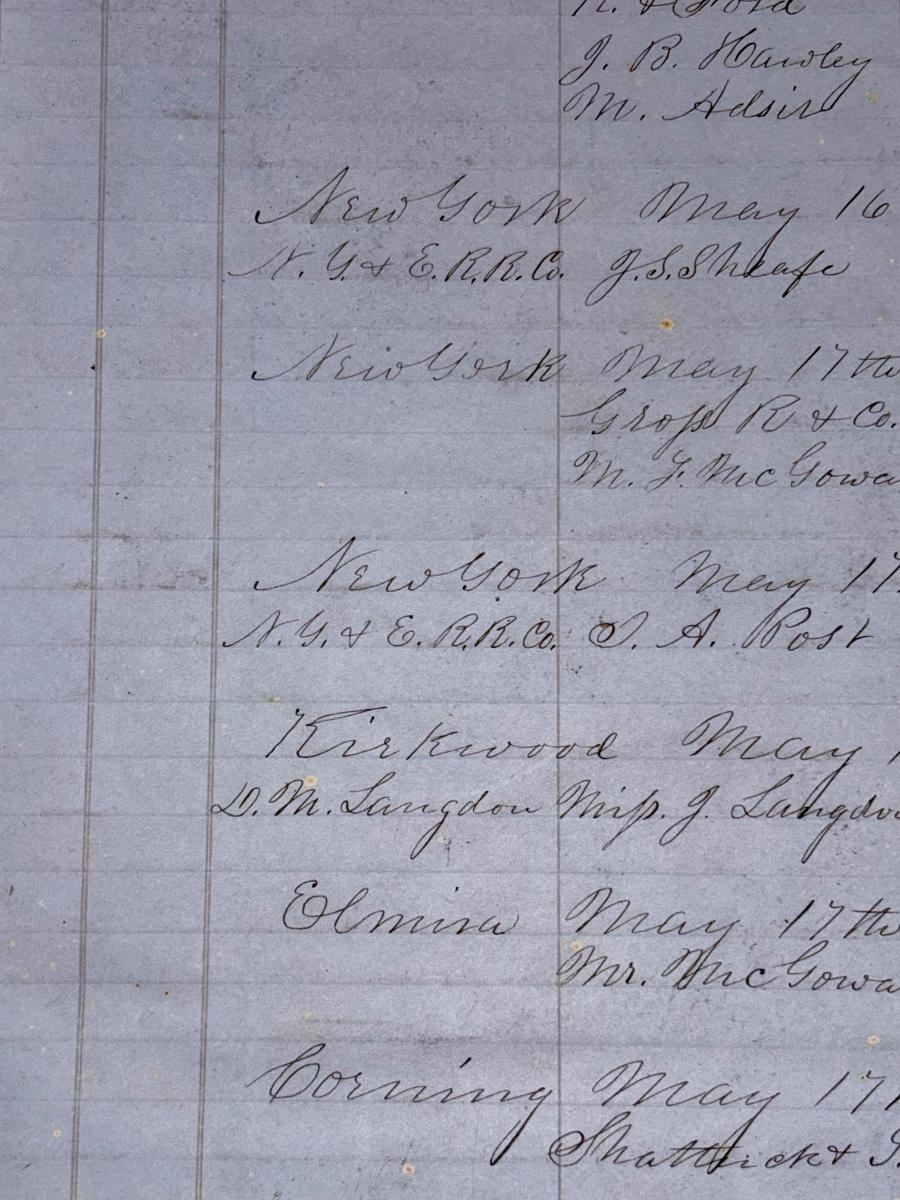 J. B. Hawley
M. Adsit
New York May 16
N. Y. & E. R. R. Co. J. S. Sheafe
New York May 17th
Gross R & Co.
M. F. McGowa
New York May 17
N. Y. & E. R. R. Co. S. A. Post
Kirkwood May 1
D. M. Langdon Miss. J. Langdon
Elmira May 17th
Mr. McGowa
Corning May 17
Shattuck &